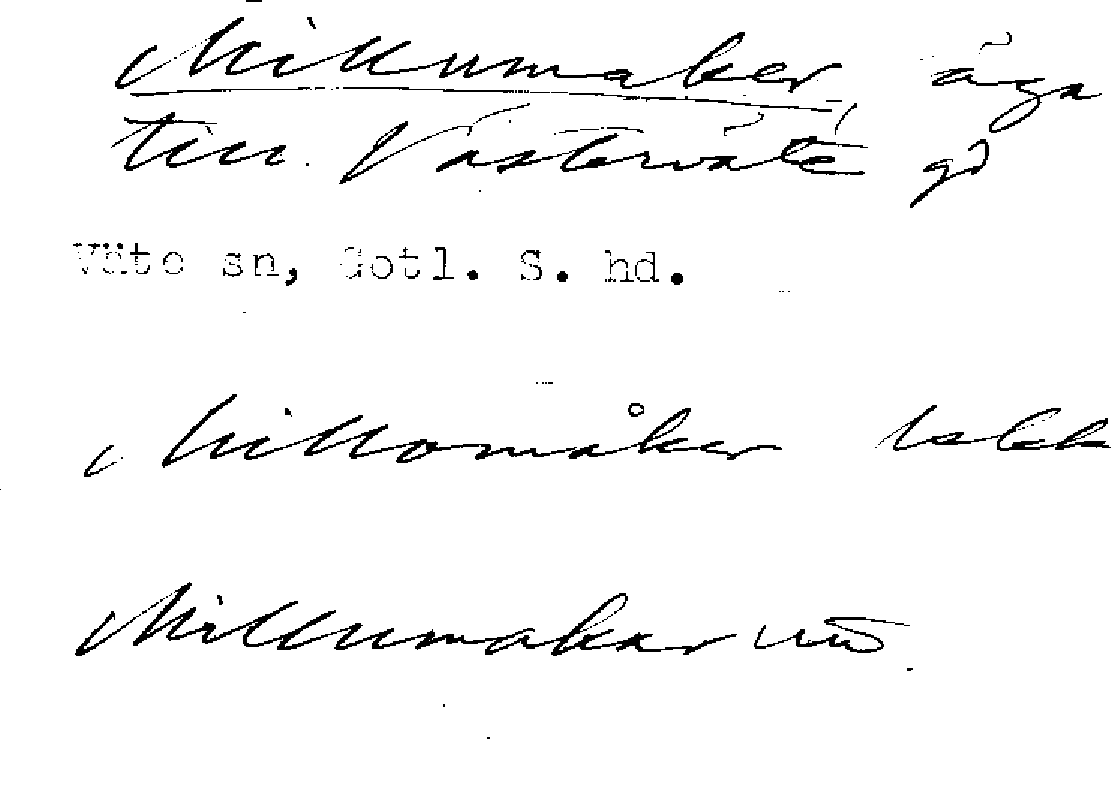 Millumaker, äga
till Västerväte gd
Väte sn, Gotl. S. hd.
Millomåker
Millumakar